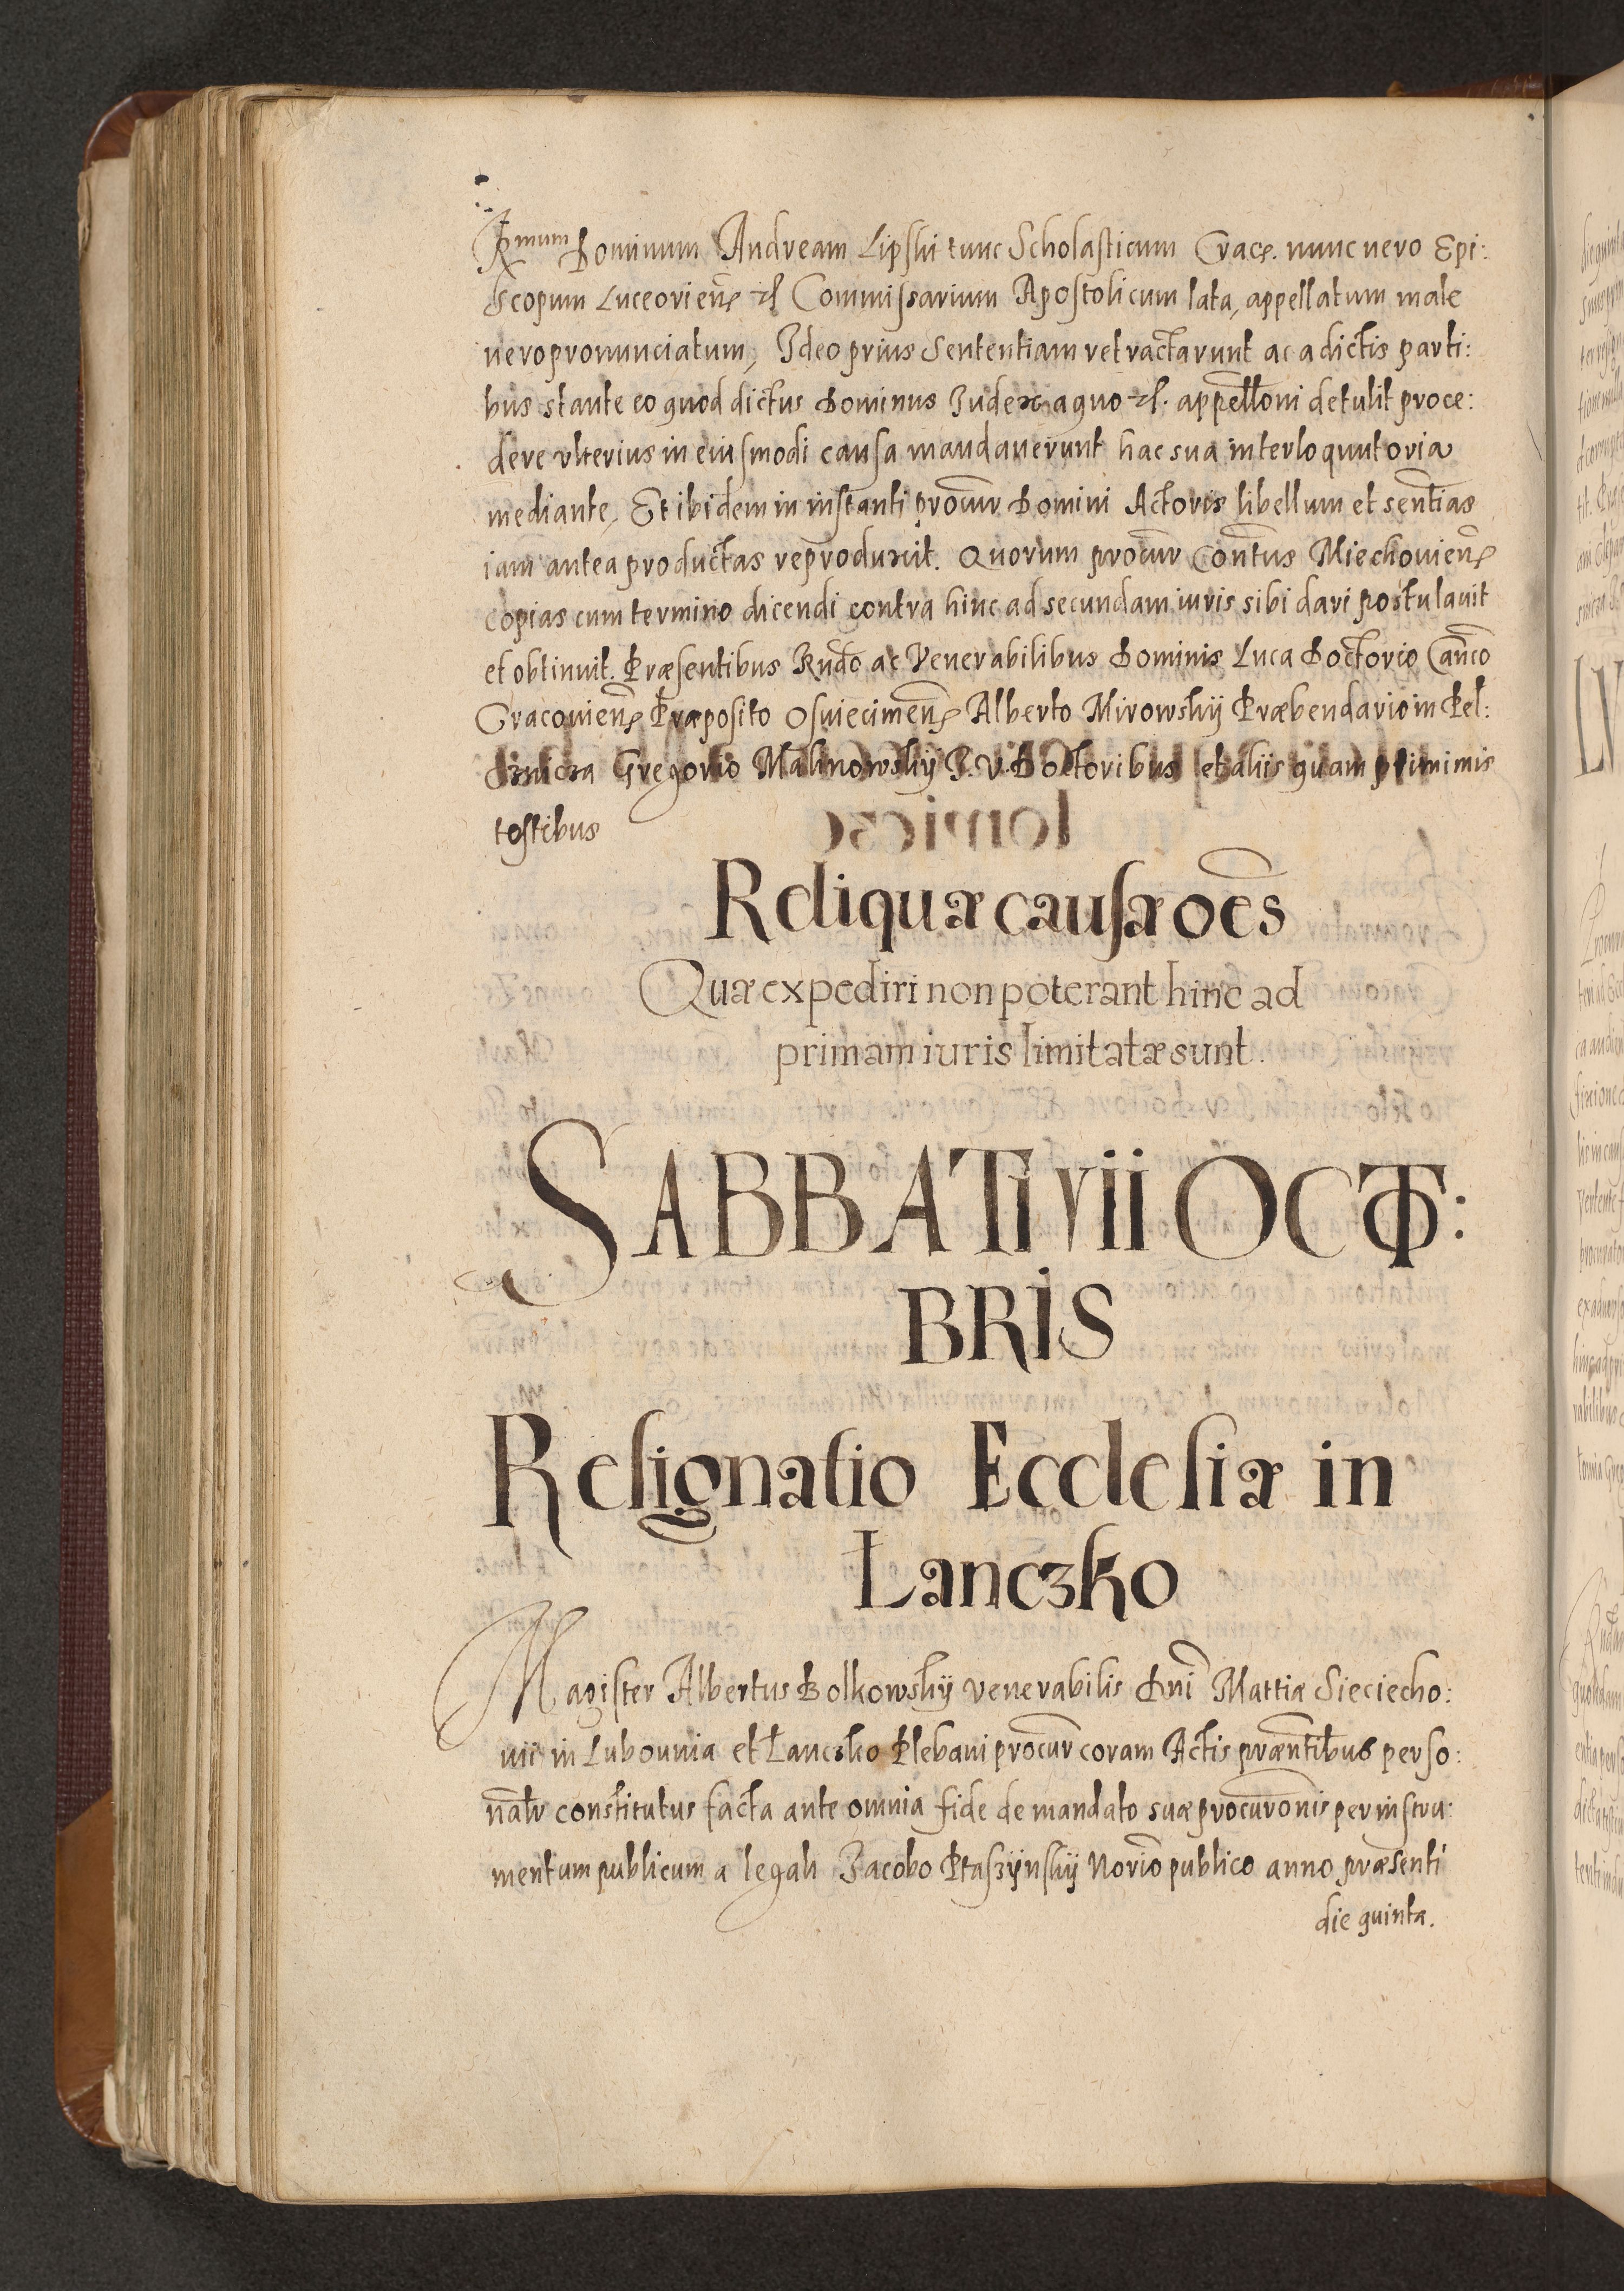 Rmum Dominum Andream Lipski tunc Scholasticum Crac. nunc uero Epi:
scopum Luceorien̄ et Commissarium Apostolicum lata, appellatum male
uero pronunciatum, Ideo prius Sententiam retractarunt ac a dictis parti:
bus stante eo quod dictus Dominus Iudex a quo etc. appell̄oni detulit proce:
dere vlterius in eiusmodi causa mandauerunt hac sua interloquutoria
mediante, Et ibidem in instanti procur̄ Domini Actoris libellum et sent̄ias
iam antea productas reproduxit. Quorum procur̄ Conu̅entus Miechouien̄
copias cum termino dicendi contra hinc ad secundam iuris sibi dari postulauit
et obtinuit. Præsentibus Rndo ac Venerabilibus Dominis Luca Doctorio Can̄co
Cracouien̄ Præposito Osuiecimen̄ Alberto Mirowskij Præbendario in Pel:
Gregorio Malinowskij I. V. Doctoribus et aliis quam plurimis
testibus
Reliquæ causæ oēs
Quæ expediri non poterant hinc ad
primam iuris limitatæ sunt.
SABBATI VII OCTO:
BRIS
Resignatio Ecclesiæ in
Łanczko
Magister Albertus Bolkowskij venerabilis Dn̄i Mattiæ Sieciecho:
uii in Lubounia et Łanczko Plebani procur̄ coram Actis præn̄tibus perso:
nal̄r constitutus facta ante omnia fide de mandato suæ procur̄onis per instru:
mentum publicum a legali Iacobo Ptaszÿnskij Nor̄io publico anno præsenti
die quinta.